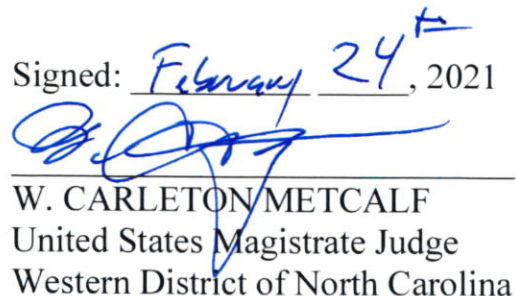 Signed: February 24th, 2021
W. CARLETON METCALF
United States Magistrate Judge
Western District of North Carolina